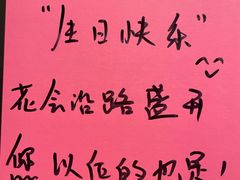 "生日快乐"
花会沿路盛开
你以后的也是！